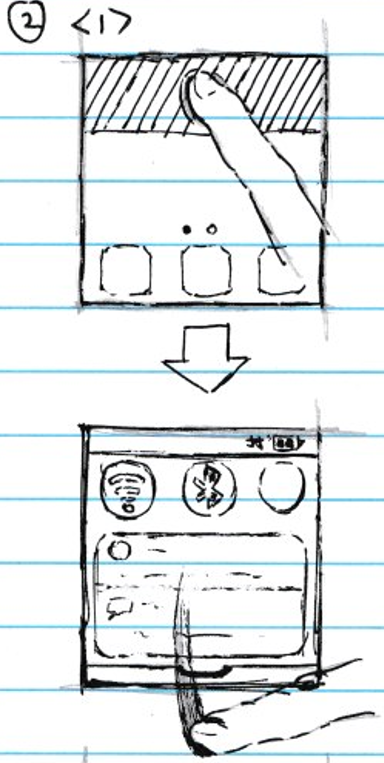 ② <1>